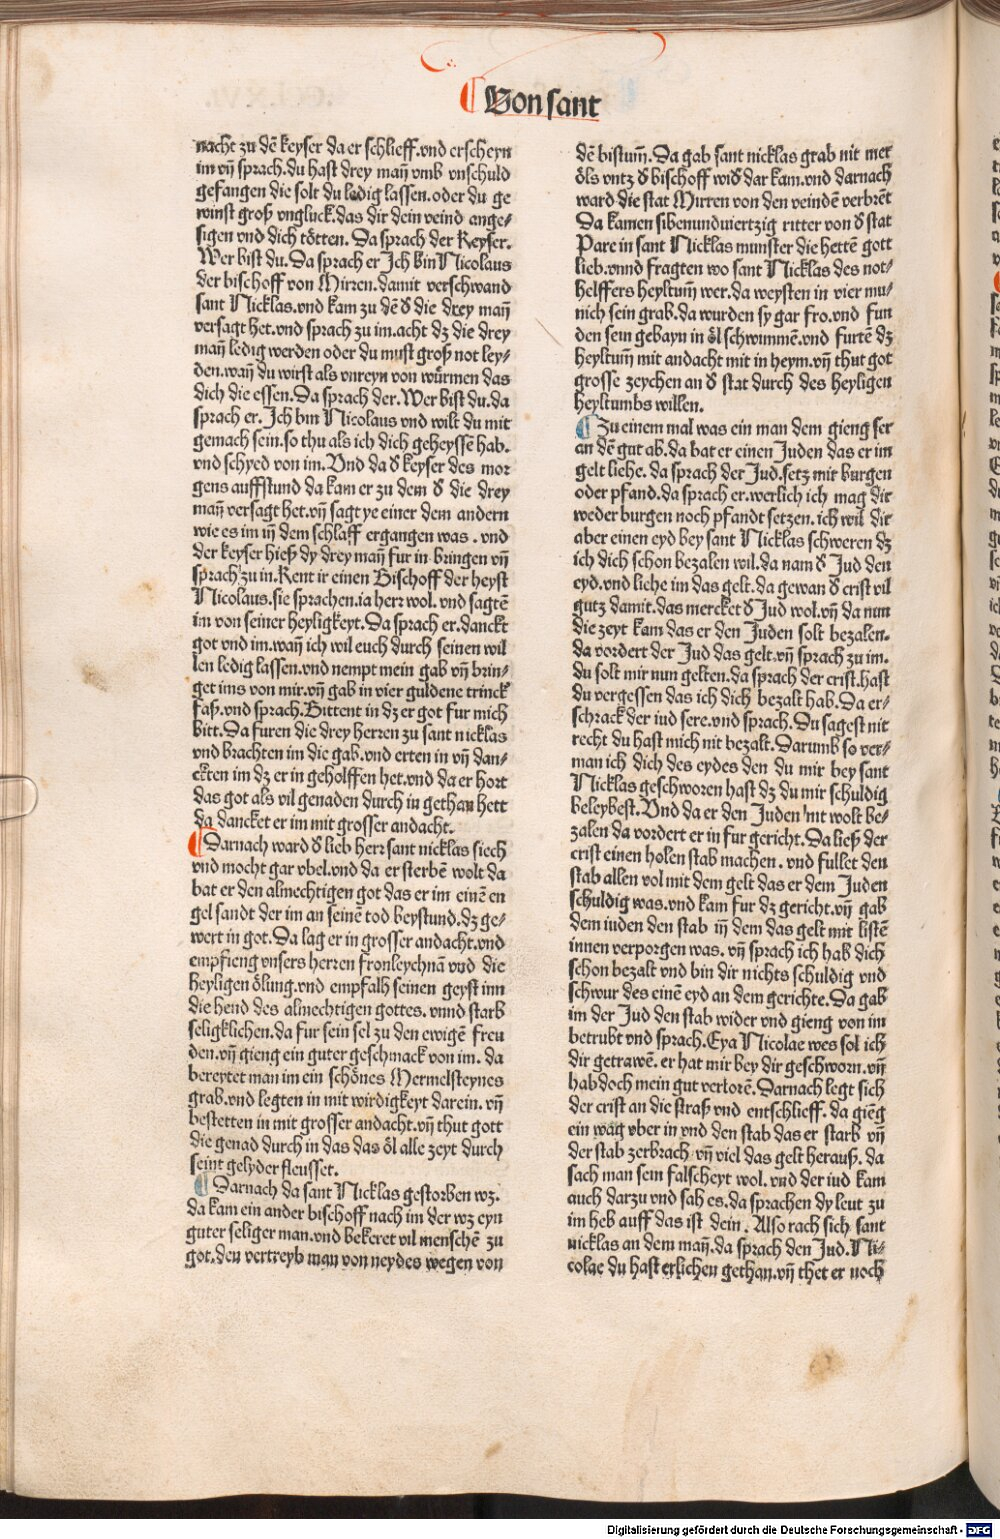 ¶ Von sant
nacht zu dē keyser da er schlieff.vnd erscheyn
im vñ sprach.du hast drey mañ vmb vnschuld
gefangen die solt du ledig lassen.oder du ge
winst groß vngluck.das dir dein veind ange⸗
sigen vnd dich tötten. Da sprach der Keyser.
Wer bist du.Da sprach er Ich bin Nicolaus
der bischoff von Mirren.damit verschwand
sant Nicklas.vnd kam zu dē đ die drey mañ
versagt het.vnd sprach zu im.acht dz die drey
mañ ledig werden oder du must groß not ley⸗
den.wañ du wirst als vnreyn von würmen das
dich die essen.Da sprach der.Wer bist du.da
sprach er.Ich bin Nicolaus vnd wilt du mit
gemach sein.so thu als ich dich geheyssē hab.
vnd schyed von im.Vnd da đ keyser des mor
gens auffstund da kam er zu dem đ die drey
mañ versagt het.vñ sagt ye einer dem andern
wie es im iñ dem schlaff ergangen was.vnd
der keyser hieß dy drey mañ fur in bringen vñ
sprach zu in.Kent ir einen Bischoff der heyst
Nicolaus.sie sprachen.ia herr wol.vnd sagtē
im von seiner heyligkeyt.Da sprach er.danckt
got vnd im.wañ ich wil euch durch seinen wil
len ledig lassen.vnd nempt mein gab vñ brin⸗
get ims von mir.vñ gab in vier guldene trinck
faß.vnd sprach.Bittent in dz er got fur mich
bitt.Da furen die drey herren zu sant nicklas
vnd brachten im die gab.vnd erten in vñ dan⸗
ckten im dz er in geholffen het.vnd da er hort
das got als vil genaden durch in gethan hett
da dancket er im mit grosser andacht.
¶ Darnach ward đ lieb herr sant nicklas siech
vnd mocht gar vbel.vnd da er sterbē wolt da
bat er den almechtigen got das er im einē en
gel sandt der im an seinē tod beystund.dz ge⸗
wert in got.Da lag er in grosser andacht.vnd
empfieng vnsers herren fronleychnā vnd die
heyligen ölung.vnd empfalh seinen geyst inn
die hend des almechtigen gottes.vnnd starb
seligklichen.da fur sein sel zu den ewigē freu
den.vñ gieng ein guter geschmack von im. da
bereytet man im ein schönes Mermelsteynes
grab.vnd legten in mit wirdigkeyt darein. vñ
bestetten in mit grosser andacht.vñ thut gott
die genad durch in das das öl alle zeyt durch
seint gelyder fleusset.
¶ Darnach da sant Nicklas gestorben wz.
da kam ein ander bischoff nach im der wz eyn
guter seliger man.vnd bekeret vil menschē zu
got.den vertreyb man von neydes wegen von
dē bistum̄.Da gab sant nicklas grab nit mer
öls vntz đ bischoff wiđ dar kam.vnd darnach
ward die stat Mirren von den veindē verbrēt
Da kamen sibenundviertzig ritter von đ stat
Pare in sant Nicklas munster die hettē gott
lieb.vnnd fragten wo sant Nicklas des not⸗
helffers heyltum̄ wer.da weysten in vier mu⸗
nich sein grab.da wurden sy gar fro.vnd fun
den sein gebayn in öl schwimmē.vnd furtē dz
heyltum̄ mit andacht mit in heym.vñ thut got
grosse zeychen an đ stat durch des heyligen
heyltumbs willen.
¶ Zu einem mal was ein man dem gieng ser
an dē gut ab.da bat er einen Juden das er im
gelt liehe. da sprach der Jud.setz mir burgen
oder pfand.da sprach er.werlich ich mag dir
weder burgen noch pfandt setzen.ich wil dir
aber einen eyd bey sant Nicklas schweren dz
ich dich schon bezalen wil.da nam đ Jud den
eyd.vnd liehe im das gelt.da gewan đ crist vil
gutz damit.das mercket đ Jud wol.vñ da nun
die zeyt kam das er den Juden solt bezalen.
da vordert der Jud das gelt.vñ sprach zu im.
du solt mir nun gelten.da sprach der crist.hast
du vergessen das ich dich bezalt hab.Da er⸗
schrack der iud sere.vnd sprach.Du sagest nit
recht du hast mich nit bezalt.Darumb so ver⸗
man ich dich des eydes den du mir bey sant
Nicklas geschworen hast dz du mir schuldig
beleybest.Vnd da er den Juden nit wolt be⸗
zalen da vordert er in fur gericht.Da ließ der
crist einen holen stab machen.vnd fullet den
stab allen vol mit dem gelt das er dem Juden
schuldig was.vnd kam fur dz gericht.vñ gab
dem iuden den stab iñ dem das gelt mit listē
innen verporgen was. vñ sprach ich hab dich
schon bezalt vnd bin dir nichts schuldig vnd
schwur des einē eyd an dem gerichte.Da gab
im der Jud den stab wider vnd gieng von im
betrubt vnd sprach.Eya Nicolae wes sol ich
dir getrawē.er hat mir bey dir geschworn.vñ
hab doch mein gut verlorē.Darnach legt sich
der crist an die straß vnd entschlieff.da giēg
ein wag vber in vnd den stab das er starb vñ
der stab zerbrach vñ viel das gelt herauß.da
sach man sein falscheyt wol.vnd der iud kam
auch darzu vnd sah es.da sprachen dy leut zu
im heb auff das ist dein.Also rach sich sant
nicklas an dem mañ.da sprach den Jud.Ni⸗
colae du hast erlichen gethan.vñ thet er noch
Digitalisierung gefördert durch die Deutsche Forschungsgemeinschaft - DFG